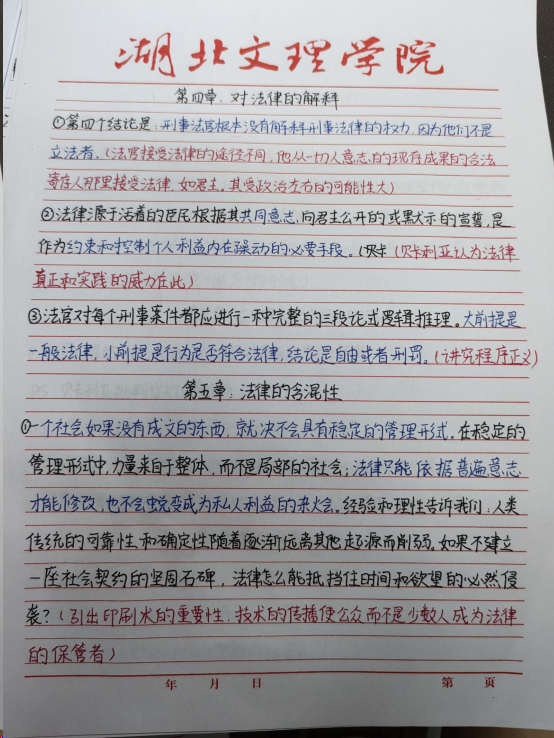 湖北文理学院
第四章：对法律的解释
①第四个结论是：刑事法官根本没有解释刑事法律的权力，因为他们不是
立法者。（法官接受法律的途径不同，他从一切人意志的现存成果的合法
寄存人那里接受法律，如君主。其受政治左右的可能性大）
②法律源于活着的臣民根据其共同意志，向君主公开的或默示的宣誓，是
作为约束和控制个人利益内在躁动的必要手段。（贝卡（贝卡利亚认为法律
真正和实践的威力在此）
③法官对每个刑事案件都应进行一种完整的三段论式逻辑推理。大前提是
一般法律，小前提是行为是否符合法律，结论是自由或者刑罚。（讲究程序正义）
第五章：法律的含混性
①一个社会如果没有成文的东西，就决不会具有稳定的管理形式。在稳定的
管理形式中，力量来自于整体，而不是局部的社会；法律只能依据普遍意志
才能修改，也不会蜕变成为私人利益的杂烩。经验和理性告诉我们：人类
传统的可靠性和确定性随着逐渐远离其他起源而削弱。如果不建立
一座社会契约的坚固石碑，法律怎么能抵挡住时间和欲望的必然侵
袭？（引出印刷术的重要性，技术的传播使公众而不是少数人成为法律
的保管者）
年 月 日 第 页